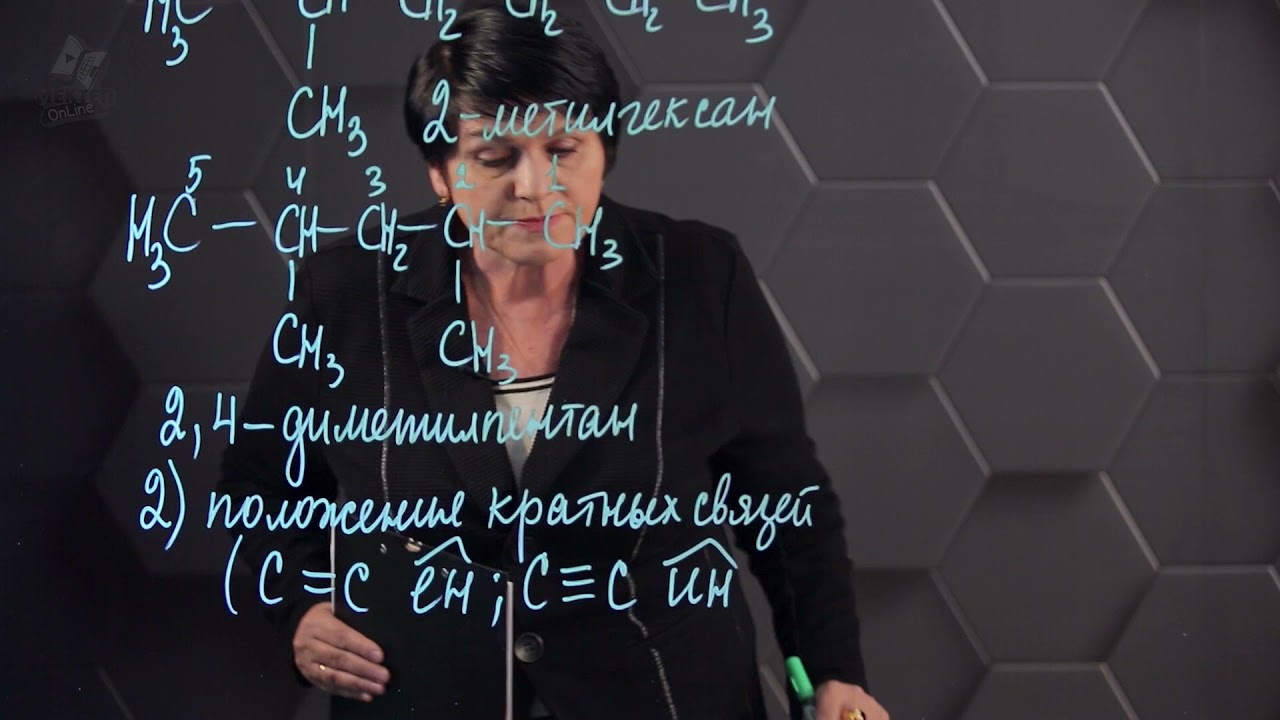 H₃C CH CH₂ CH₂ CH₂ CH₃
CH₃ 2-метилгексан
5 4 3 2 1
H₃C — CH — CH₂ — CH — CH₃
CH₃ CH₃
2,4-диметилпентан
2) положение кратных связей
(C=C ен; C≡C ин
OnLine